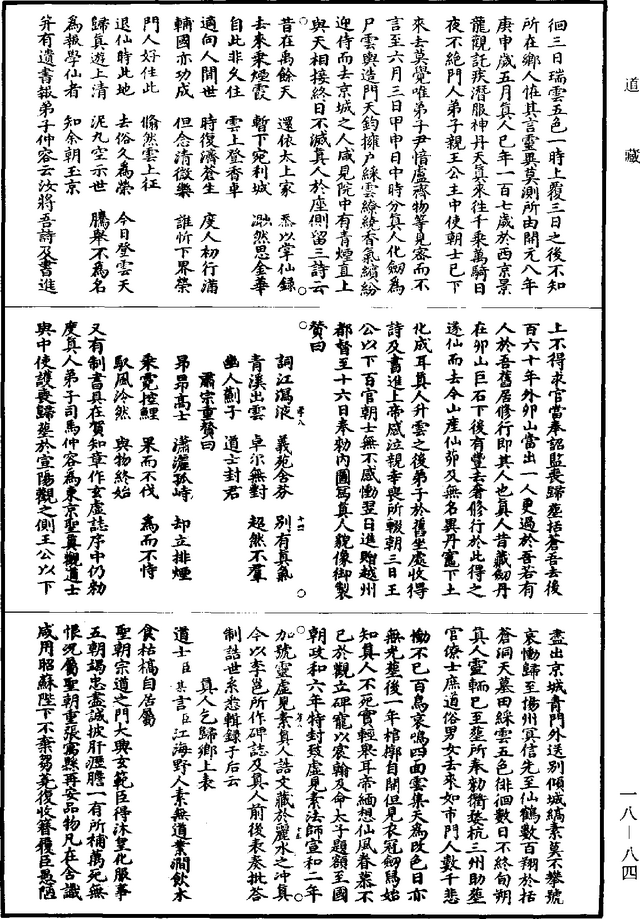 道藏
徊三日瑞雲五色一時上覆三日之後不知
所在鄉人恠其言靈異莫測所由開元八年
庚申歲五月真人已年一百七歲於西京景
龍觀託疾潛服神丹天真來往千乘萬騎日
夜不絶門人弟子親王公主中使朝士已下
來去莫覺唯弟子尹愔盧齊物等見密而不
言至六月三日甲申日中時分真人化劒為
尸雲輿造門天鈞擁户綵雲繚繞香氣繽紛
迎侍而去京城之人咸見院中有青煙直上
與天相接終日不滅真人於座側留三詩云
昔在禹餘天 還依太上家 忝以掌仙錄
去來乘煙霞 暫下宛利城 渺然思金華
自此非久住 雲上登香車
適向人間世 時復濟蒼生 度人初行滿
輔國亦功成 但念清微樂 誰忻下界榮
門人好住此 翛然雲上征
退仙時此地 去俗久為榮 今日登雲天
歸真遊上清 泥丸空示世 騰舉不為名
為報學仙者 知余朝玉京
并有遺書報弟子仲容云汝將吾詩及書進
上不得求官當奉詔監喪歸葬括蒼吾去後
百六十年外卯山當出一人更過於吾若有
人於吾舊居修行即其人也真人昔藏劒丹
在卯山巨石下後有豐去奢修行於此得之
遂仙而去今山産仙茆及無名異丹竈下土
化成耳真人升雲之後弟子於舊坐處收得
詩及書進上帝感泣親幸喪所輟朝三日王
公以下百官朝士無不感慟翌日進贈越州
都督至十六日奉勅内圖寫真人貌像御製
賛曰
詞江瀉液 義苑含芬 別有真氣
青溪出雲 卓尔無對 超然不羣
幽人薊子 道士封君
肅宗重賛曰
昂昂高士 瀟灑孤峙 却立排煙
乘霓控鯉 果而不伐 為而不恃
馭風泠然 與物終始
又有制書具在賀知章作玄虛誌序中仍勅
度真人弟子司馬仲容為東京聖真觀道士
與中使護喪歸葬於宣陽觀之側王公以下
盡出京城青門外送別傾城縞素莫不攀號
哀慟歸至揚州冥信先至仙鶴數百翔於括
蒼洞天墓田綵雲五色徘徊數日不終旬朔
真人靈輀已至葬所奉勅衢婺杭三州助葬
官僚士庶道俗男女去來如市門人數千悲
慟不已百鳥哀鳴四面雲集天為改色日亦
無光葬後一年棺槨自開但見衣冠劒舄始
知真人不死實輕舉耳帝緬想仙風眷慕不
已於觀立碑寵以宸翰及命太子題額至國
朝政和六年特封致虛見素法師宣和二年
加號靈虛見素真人誥文藏於麗水之沖真
今以李邕所作碑誌及真人前後表奏批答
制誥世系悉輯録于后云
真人乞歸鄉上表
道士臣某言臣江海野人素無道業澗飲木
食枯槁自居屬
聖朝宗道之門大興玄範臣得沐皇化服事
五朝竭忠盡誠披肝瀝膽一有所補萬死無
恨况屬聖朝重張寓縣再安品物凡在含識
咸用昭蘇陛下不棄芻蕘復收簪履臣愚陋
一八—八四